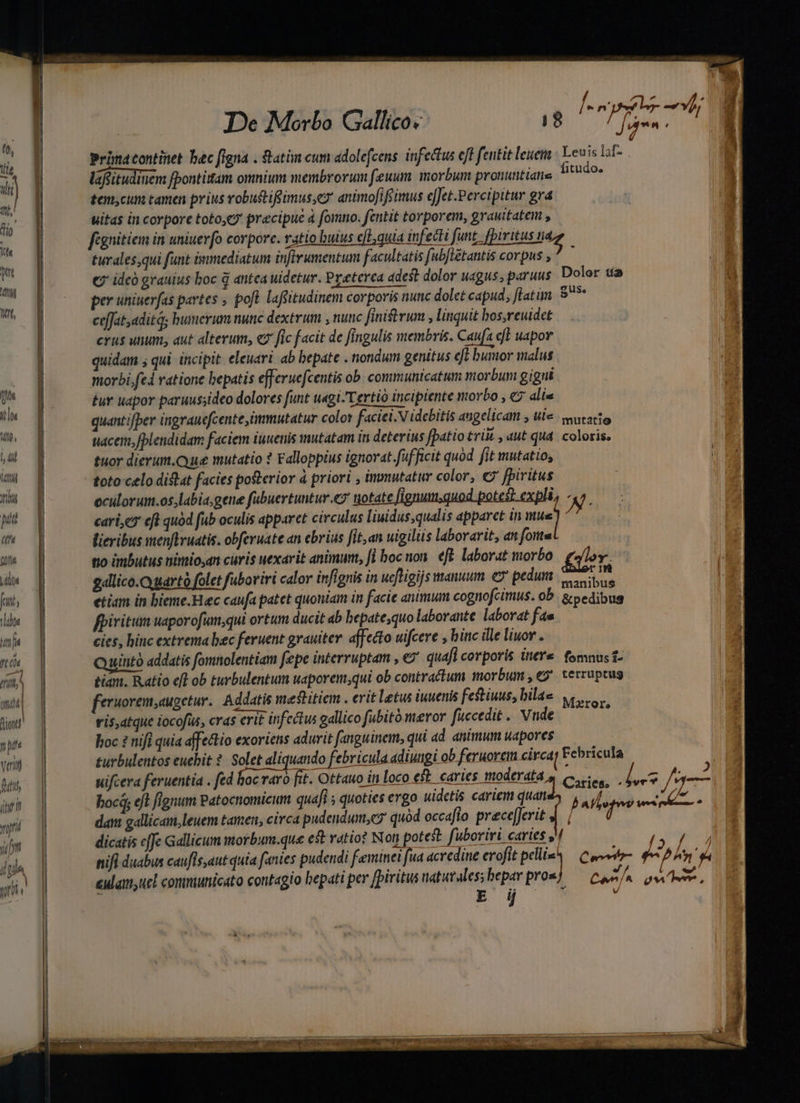 De Morbo Gallico. 18
Prima continet hæc signa. Statim cum adolescens infectus est sentit leuem Leuis las-
laßitudinem spontietam omnium membrorum sæuum morbum pronuntian= situdo.
tem,cum tamen prius robustißimus,& animosißimus esset.Percipitur gra
uitas in corpore toto,& præcipuè à somno. sentit torporem, grauitatem ,
segnitiem in uniuerso corpore. ratio huius est,quia infecti sunt spiritus na
turales,qui sunt immediatum instrumentum facultatis subsletantis corpus ,
& ideò grauius hoc q̃ antea uidetur. Præterea adest dolor uagus, paruus Dolor ua
per uniuersas partes , post laßitudinem corporis nunc dolet caput, statim gus.
cessat,aditq; humerum nunc dextrum , nunc sinistrum , linquit hos,reuidet
crus unum, aut alterum, & sic facit de singulis membris. Causa est uapor
quidam , qui incipit eleuari ab hepate . nondum genitus est humor malus
morbi,sed ratione hepatis efferuescentis ob communicatum morbum gigni
tur uapor paruus;ideo dolores sunt uagi.Tertiò incipiente morbo , & ali=
quantisper ingrauescente,immutatur color faciei.Videbitis angelicam , ui= mutatio
uacem,splendidam faciem iuuenis mutatam in deterius spatio triū , aut qua coloris.
tuor dierum.Quæ mutatio ? Falloppius ignorat.sufficit quòd fit mutatio,
toto cælo distat facies posterior à priori , immutatur color, & spiritus
oculorum.os,labia,genæ subuertuntur.& notate signum,quod potest expli,
cari,& est quòd sub oculis apparet circulus liuidus,qualis apparet in mu=
lieribus menstruatis. obseruate an ebrius sit,an uigiliis laborarit, an som=
no imbutus nimio,an curis uexarit animum, si hoc non est laborat morbo
gallico.Quartò solet suboriri calor insignis in uestigijs manuum & pedum manibus
etiam in hieme.Hæc causa patet quoniam in facie animum cognoscimus. ob &pedibus
spiritum uaporosum,qui ortum ducit ab hepate,quo laborante laborat fa=
cies, hinc extrema hæc feruent grauiter affecto uiscere , hinc ille liuor .
Quintò addatis somnolentiam sæpe interruptam , & quasi corporis iner= somnus ī-
tiam. Ratio est ob turbulentum uaporem,qui ob contractum morbum , & terruptus
feruorem,augetur. Addatis mæstitiem . erit lætus iuuenis festiuus, hila= Mæror.
ris,atque iocosus, cras erit infectus gallico subitò mæror succedit . Vnde
hoc ? nisi quia affectio exoriens adurit sanguinem, qui ad animum uapores
turbulentos euehit ? Solet aliquando febricula adiungi ob feruorem circa Febricula
uiscera feruentia . sed hoc rarò fit. Ottauo in loco est caries moderata , Caries.
hocq; est signum Patocnomicum quasi ; quoties ergo uidetis cariem quan=
dam gallicam,leuem tamen, circa pudendum,& quòd occasio præcesserit ,
dicatis esse Gallicum morbum.quæ est ratio? Non potest suboriri caries ,
nisi duabus causis,aut quia sanies pudendi fæminei sua acredine erosit pelli=
culam,uel communicato contagio hepati per spiritus naturales; hepar pro=
E ij